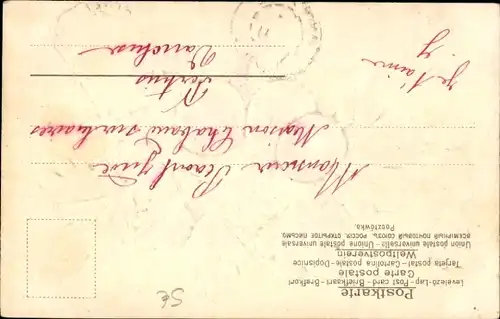 Postkarte
Levelező-Lap - Post card - Briefkaart - Brefkort
Carte postale
Tarjeta postal - Cartolina postale - Dopisnice
Weltpostverein
Union postale universelle - Unione postale universale
ВСЕМІРНЫЙ ПОЧТОВЫЙ СОЮЗЪ. РОССІЯ. ОТКРЫТОЕ ПИСЬМО.
Pocztówka.
Monsieur Raoul
Maison Chabaud
Pertuis
Vaucluse
je t'aime